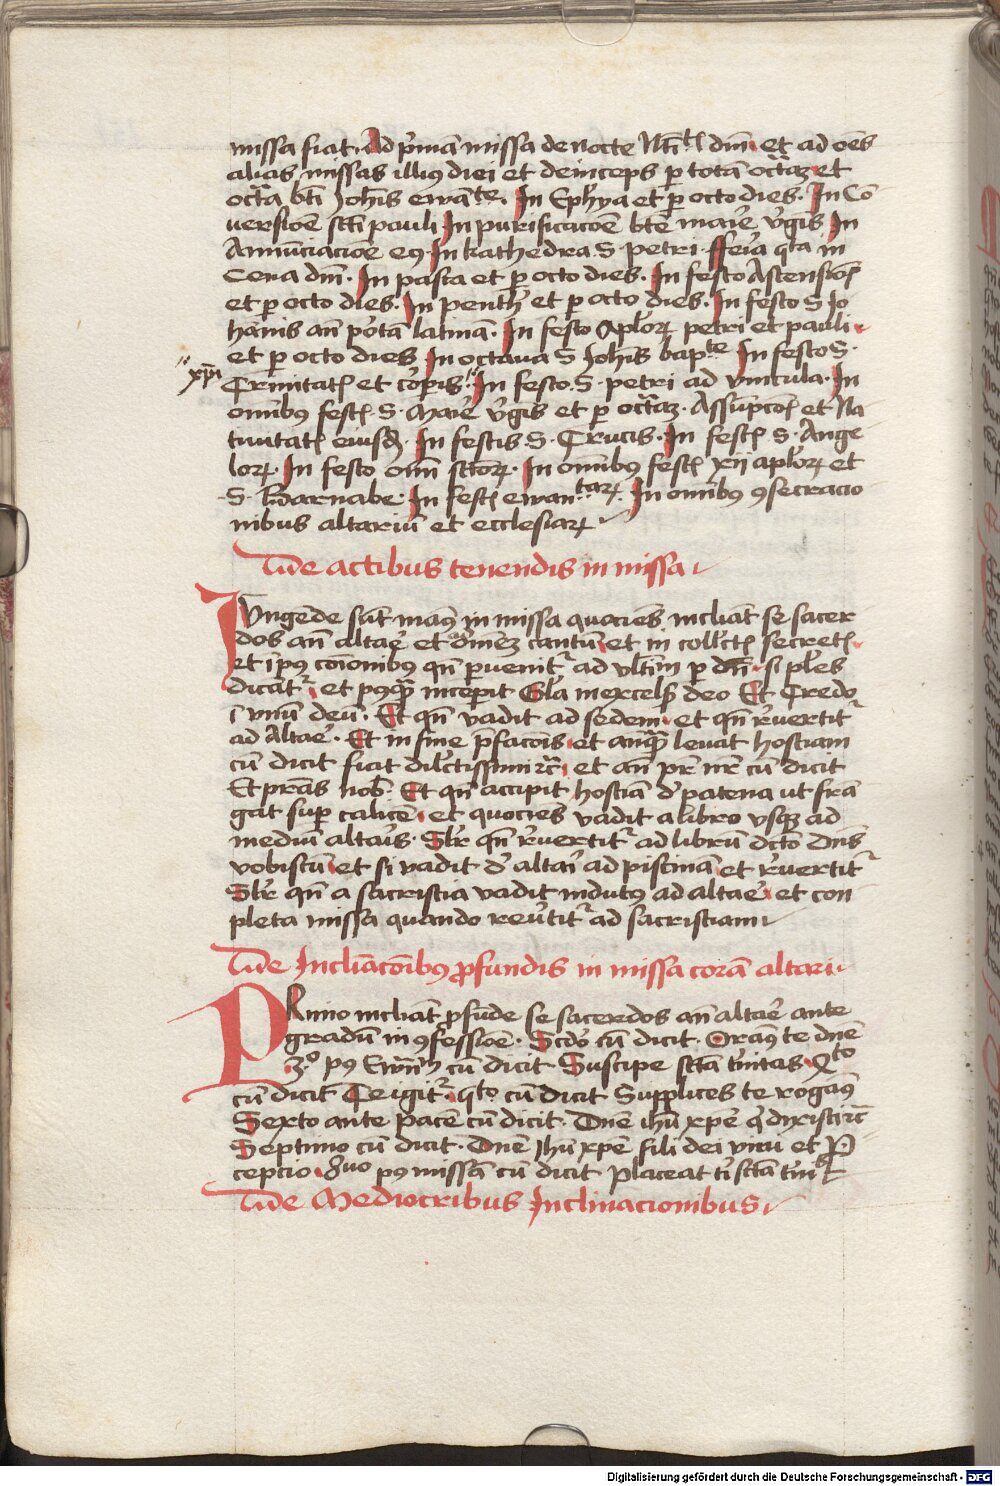 missa fiat. Ad p̄mā missa de nocte Nat̄ dn̄i. et ad oēs
alias missas illiꝰ diei et deinceps p totā octaȝ et
octā bt̄i Joh̄is ewāte. In Eph̄ya et p octo dies. In Cō
versiōe sc̄ti pauli In purificacōe bt̄e marie v̄gīs In
Annūciaciōe eiꝰ In kathedra S. petri. fferia qta in
Cena dn̄i. In pasca et p octo dies. In festo Ascensiōis
et p octo dies. In penth̄ et p octo dies. In festo S Jo
hānis an̄ portā latinā. In festo Aplōrꝝ petri et pauli
et p octo dies In octava S Joh̄is bapte In festo S.
Trinitatꝭ et corp̄is. In festo. S. petri ad vincula. In
xpi
omībus festꝭ S. Marie v̄gīs et p octaȝ. Assūpcōꝭ et Na
tiuitatꝭ eiusdꝭ. In festis S. Crucis. In festꝭ S. Ange
lorꝝ. In festo oīm sc̄torꝝ. In omībꝰ festꝭ xii aplōrꝝ et
S. barnabe. In festꝭ ewantarꝝ. In omībꝰ ꝯsecracio
nibus altariū et ecclesiarꝝ
De actibus tenendis in missa
Jungende sūt manꝰ in missa quociēs incliāt se sacer
dos an̄ altare et ad om̄eȝ cantū et in collectꝭ secretꝭ
et ip̄is cōionibꝰ qn̄ puenit̄ ad vltīm p dn̄m. si ples
dicāt̄. et postqꝫ incepit Gl̄a in excelsꝭ deo Et Credo
ī vnū deū. Et qn̄ vadit ad sedem. et qn̄ reuertit̄
ad Altare. Et in fine p̄facōis et anqꝫ levat hostiam
cū dicit fiat dilectissimi ⁊c̄ et an̄ pr̄ nr̄ cū dicit
Et prestās nob̄. Et qn̄ accipit hostiā de patena ut frā
gat sup calicē. et quociēs vadit a libro vsqꝫ ad
mediū altaris. Silr̄ qn̄ reuertit̄ ad librū dcō Dn̄s
vobiscū et si vadit de altari ad piscinā et reuertit̄
Silr̄ qn̄ a sacristia vadit indutꝰ ad altare. et con
pleta missa quando reūtit̄ ad sacristiam
De Incliācōibꝰ ꝓfundis in missa corā altari
PRimo incliāt ꝓfūde se sacerdos an̄ altare ante
gradū in ꝯfessiōe. Scdō cū dicit. Oramꝰ te dn̄e
3º pꝰ Ewm̄ cū dicit Suscipe scta t̄nitas. Qto
cū dicit Te igit̄. qto cū dicit Supplices te rogamꝰ
Sexto ante pacē cū dicit. Dn̄e ih̄u xp̄e q̄ dixisti ⁊c̄
Septimo cū dicit. Dn̄e ih̄u xp̄e fili dei viui et P
ceptio. 8uo pꝰ missam cū dicit placeat ti scta t̄ni
De Mediocribus Inclinacionibus
Digitalisierung gefördert durch die Deutsche Forschungsgemeinschaft - DFG